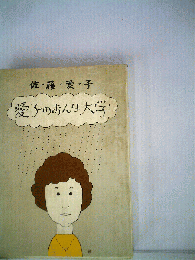 佐・藤・愛・子
愛子のおんな大学